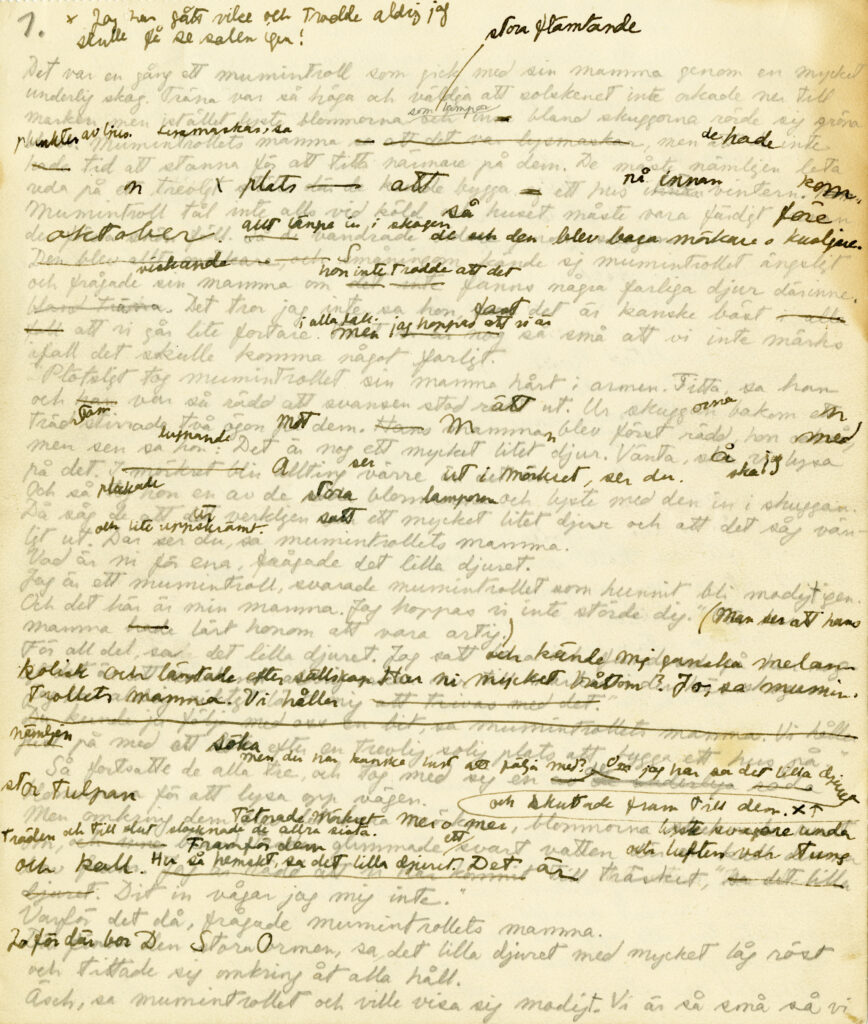 1.
x Jag har gått vilse och trodde aldrig jag
skulle få se solen igen!
stora flämtande
Det var en gång ett mumintroll som gick med sin mamma genom en mycket
underlig skog. Träna var så höga och att solskenet inte orkade ner till
som lampor
marken men istället lyste blommorna och bland skuggorna rörde sig gröna
punkter av ljus. Lysmaskar, sa
mumintrollets mamma att det var lysmaskar, men de hade inte
hade tid att stanna för att titta närmare på dem. De måste nämligen leta
reda på en trevlig x plats att bygga ett hus på innan vintern kom.
Mumintroll tål inte alls vid köld så huset måste vara färdigt före
oktober. allt längre in i skogen
vandrade de och den blev bara mörkare o kusligare.
Den blev och Småningom kände sig mumintrollet ängsligt
viskande hon inte trodde att det
och frågade sin mamma om det inte fanns några farliga djur därinne
bland träna. Det tror jag inte sa hon, fast det är kanske bäst
i alla fall.
att vi går lite fortare. Men jag hoppas att vi är så små att vi inte märks
ifall det skulle komma något farligt.
Plötsligt tog mumintrollet sin mamma hårt i armen. Titta, sa han
och var så rädd att svansen stod rätt ut. Ur skuggorna bakom en
träd stam stirrade två ögon mot dem. Mamman blev först rädd hon med
lugnande
men sen sa hon: Det är nog ett mycket litet djur. Vänta, så ska jag lysa
på det. Allting ser värre ut i mörkret, ser du.
Och så plockade hon en av de stora blomlamporna och lyste med den in i skuggan.
Då såg de att det verkligen satt ett mycket litet djur och att det såg vän-
ligt ut och lite uppskrämt. Där ser du, sa mumintrollets mamma.
Vad är ni för ena, frågade det lilla djuret.
Jag är ett mumintroll, svarade mumintrollet som hunnit bli modigt igen.
Och det här är min mamma. Jag hoppas vi inte störde dig." (Man ser att hans
mamma lärt honom att vara artig.)
För all del, sa det lilla djuret. Jag satt och kände mig ganska melan-
kolisk och längtade efter sällskap. Har ni mycket bråttom? Jo, sa mumin-
trollets mamma. Vi håller att trivas med det."
följa med oss en bit, sa mumintrollets mamma. Vi håller
nämligen på med att söka efter en trevlig solig plats att bygga ett hus på
men du har kanske lust att följa med? Om jag har sa det lilla djuret
och skuttade fram till dem. x ↑
Så fortsatte de alla tre, och tog med sig en
stor tulpan för att lysa opp vägen.
Men omkring dem tätnade mörkret mer o mer, blommorna lyste svagare under
träden och till slut slocknade de allra sista.
Framför dem glimmade ett svart vatten och luften var tung
och kall. Hu så hemskt, sa det lilla djuret. Det är träsket," sa det lilla
djuret. Dit in vågar jag mig inte."
Varför det då, frågade mumintrollets mamma.
Jo för där bor Den Stora Ormen, sa det lilla djuret med mycket låg röst
och tittade sig omkring åt alla håll.
Äsch, sa mumintrollet och ville visa sig modigt. Vi är så små så vi